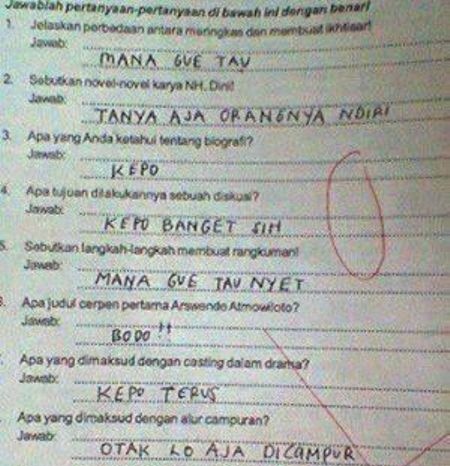 Jawablah pertanyaan-pertanyaan di bawah ini dengan benar!
1. Jelaskan perbedaan antara meringkas dan membuat ikhtisar!
Jawab:
MANA GUE TAU
2. Sebutkan novel-novel karya NH. Dini!
Jawab:
TANYA AJA ORANGNYA NDIRI
3. Apa yang Anda ketahui tentang biografi?
Jawab:
KEPO
4. Apa tujuan dilakukannya sebuah diskusi?
Jawab:
KEPO BANGET SIH
5. Sebutkan langkah-langkah membuat rangkuman!
Jawab:
MANA GUE TAU NYET
Apa judul cerpen pertama Arswendo Atmowiloto?
Jawab:
BODO !!
Apa yang dimaksud dengan casting dalam drama?
Jawab:
KEPO TERUS
Apa yang dimaksud dengan alur campuran?
Jawab:
OTAK LO AJA DICAMPUR